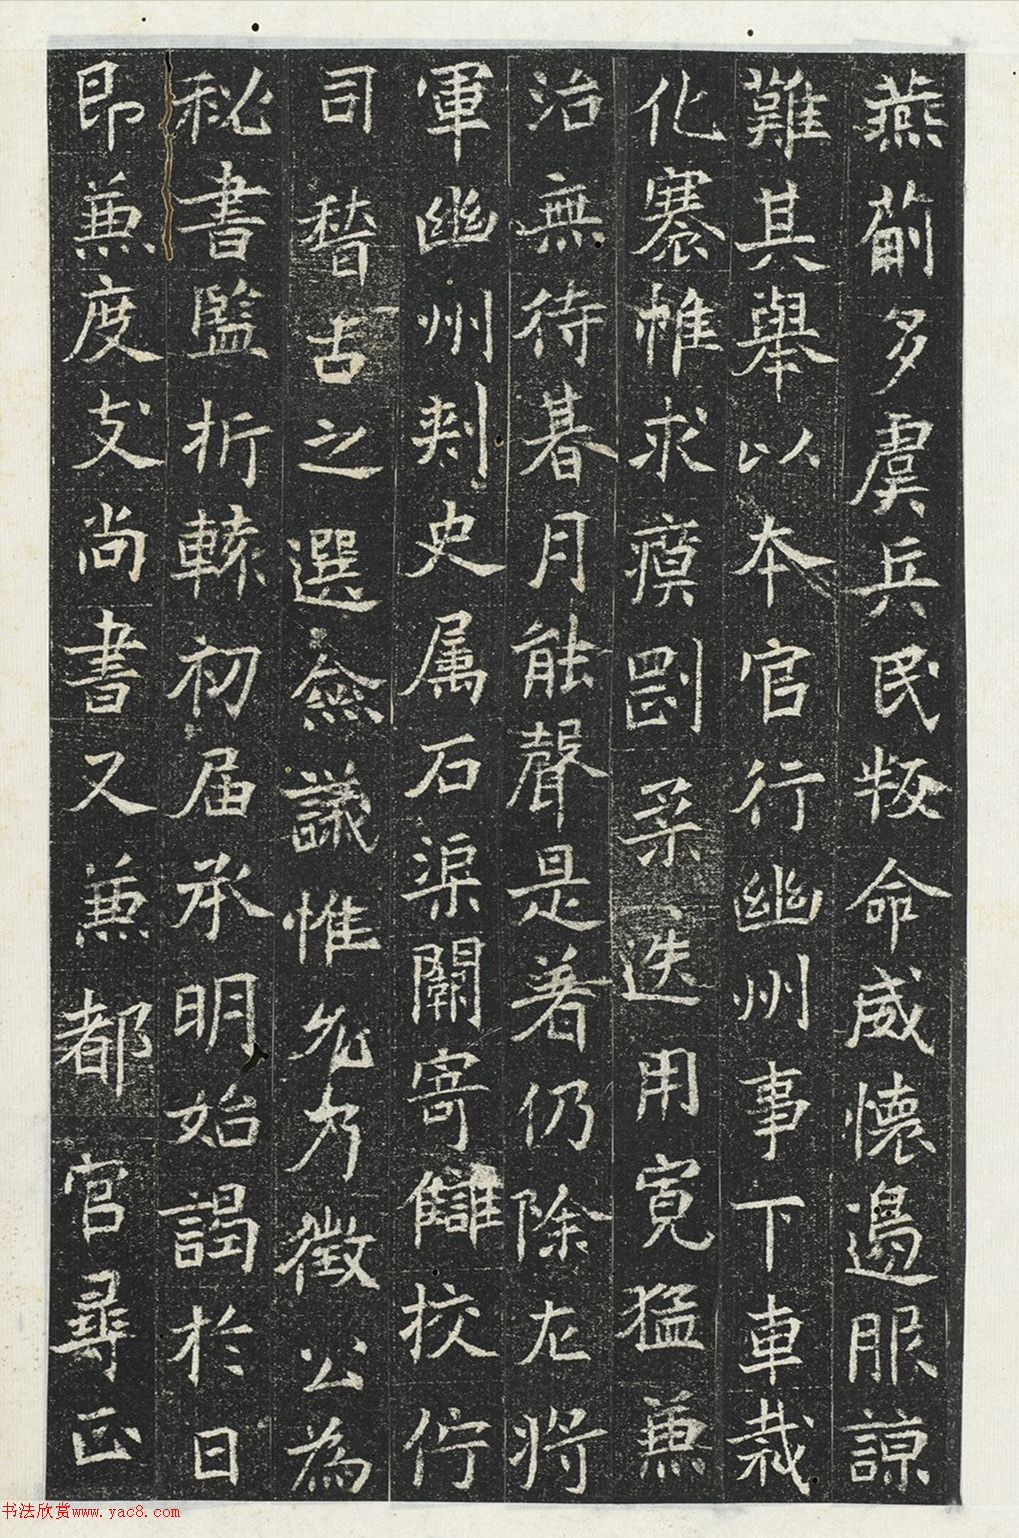 燕薊多虞兵民叛命威懷邊服諒
難其舉以本官行幽州事下車裁
化褰帷求瘼剛柔迭用寬猛兼
治無待朞月能聲是著仍除左將
軍幽州刺史属石渠闕寄讎校佇
司稽古之選僉議惟允乃徵公為
秘書監折轅初届承明始謁於日
即兼度支尚書又兼都官尋正
书法欣赏www.yac8.com